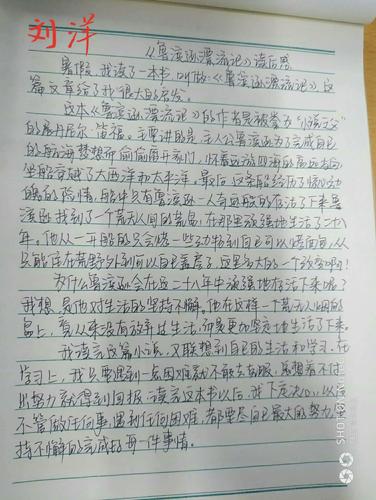 刘洋
《鲁滨逊漂流记》读后感
暑假,我读了一本书,叫做《鲁滨逊漂流记》,这
篇文章给了我很大的启发。
这本《鲁滨逊漂流记》的作者是被誉为"小说之父"
的展丹尼尔·笛福。主要讲的是:主人公鲁滨逊为了完成自己
的航海梦想而偷偷离开家门,怀着远游四海的高远志向,
坐船穿越了大西洋和太平洋。最后,这条船经历了惊心动
魄的险情,船中只有鲁滨逊一人奇迹般的存活了下来鲁
滨逊找到了个荒无人间的荒岛,在那里顽强地生活了二十八
年。他从一开始的只会吃一些动物到自己可以烤面包,从
只能住在荒野外到可以自己盖房子,这是多大的一个改变啊!
为什么鲁滨逊会在这二十八年中顽强地存活下来呢?
我想,是他对生活的坚持不懈。他在这样一个荒无人烟的
岛上,看从来没有放弃过生活,而是更加坚定地生活了下来。
我读完这篇小说,又联想到自己的生活和学习。在
学习上,我只要遇到一点困难就不敢去克服,总想着不付
出努力就得到回报。读完这本书以后,我下定决心,以后
不管做任何事,遇到任何困难,都要尽自己最大的努力,坚
持不懈的完成好每一件事情。
SHOT ON